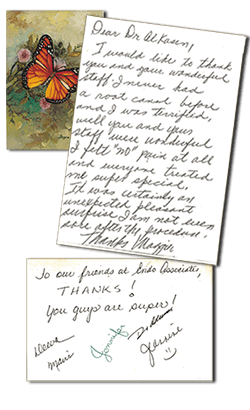 Dear Dr Alkasen,
I would like to thank
you and your wonderful
staff I never had
a root canal before
and I was terrified,
well you and your
staff were wonderful
I felt "no" pain at all
and everyone treated
me super special.
It was certainly an
unexpected pleasant
surprise I am not even
sore after the procedure.
Thanks
To our friends at Endo Associates,
THANKS!
You guys are super!
Jennifer
Marie
Jeannine